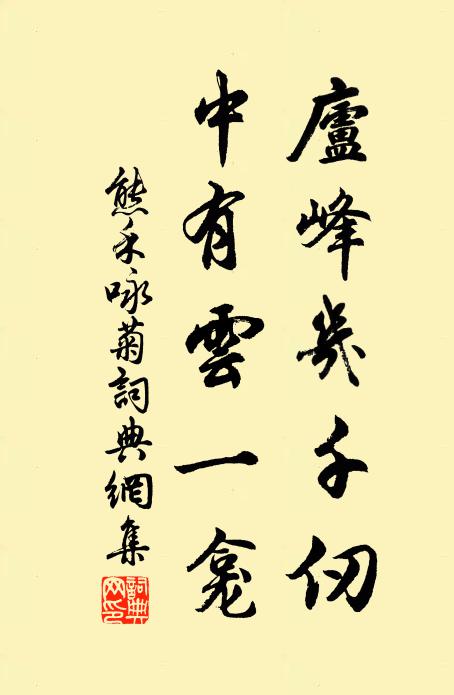 廬峰幾千仞
中有雲一龕
熊禾咏菊詞典網集
詞典
网印